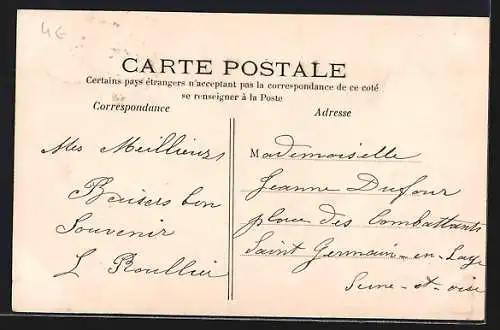 4€
CARTE POSTALE
Certains pays étrangers n'acceptent pas la correspondance de ce coté
se renseigner à la Poste
Correspondance
Adresse
Mes Meillieurs
Baisers bon
Souvenir
L Roullier
Mademoiselle
Jeanne Dufour
place des Combattants
Saint Germain-en-Laye
Seine-et-oise